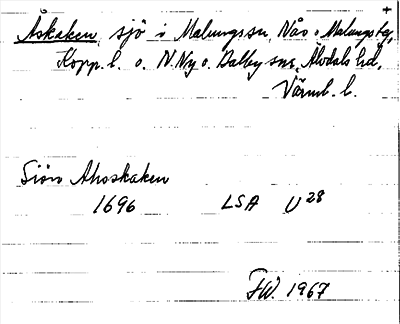 Åskaken, sjö i Malungs sn, Nås o. Malungs fg,
Kopp. l. o. N. Ny o. Dalby snr, Älvdals hd,
Värml. l.
Siön Ahoskaken
1696 LSA U28
FW. 1967